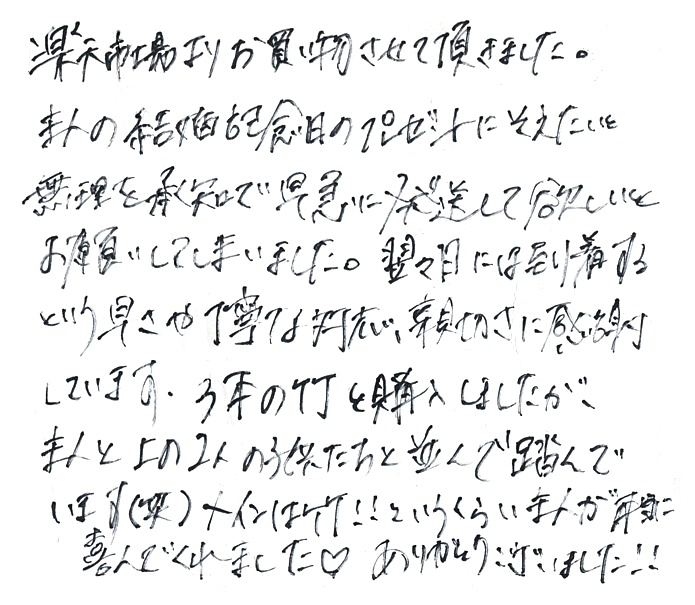 楽天市場よりお買い物させて頂きました。
主人の結婚記念日のプレゼントにそえたいと
無理を承知で早急に発送して欲しいと
お願いしてしまいました。翌々日には到着する
という早さや丁寧な対応、親切さに感謝
しています。3本の竹を購入しましたが、
主人と上の2人の子供たちと並んで踏んで
います(笑)メインは竹!!というくらい主人が本気に
喜んでくれました♡ ありがとうございました!!